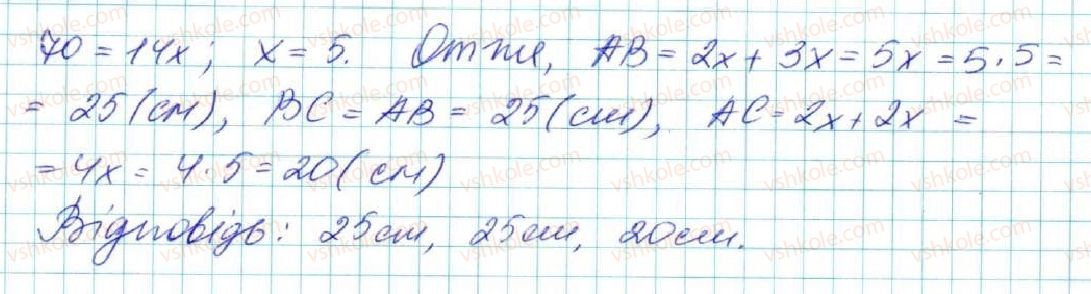 70 = 14x; x = 5. Отже, AB = 2x + 3x = 5x = 5·5 =
= 25 (см), BC = AB = 25 (см), AC = 2x + 2x =
= 4x = 4·5 = 20 (см)
Відповідь: 25см, 25см, 20см.